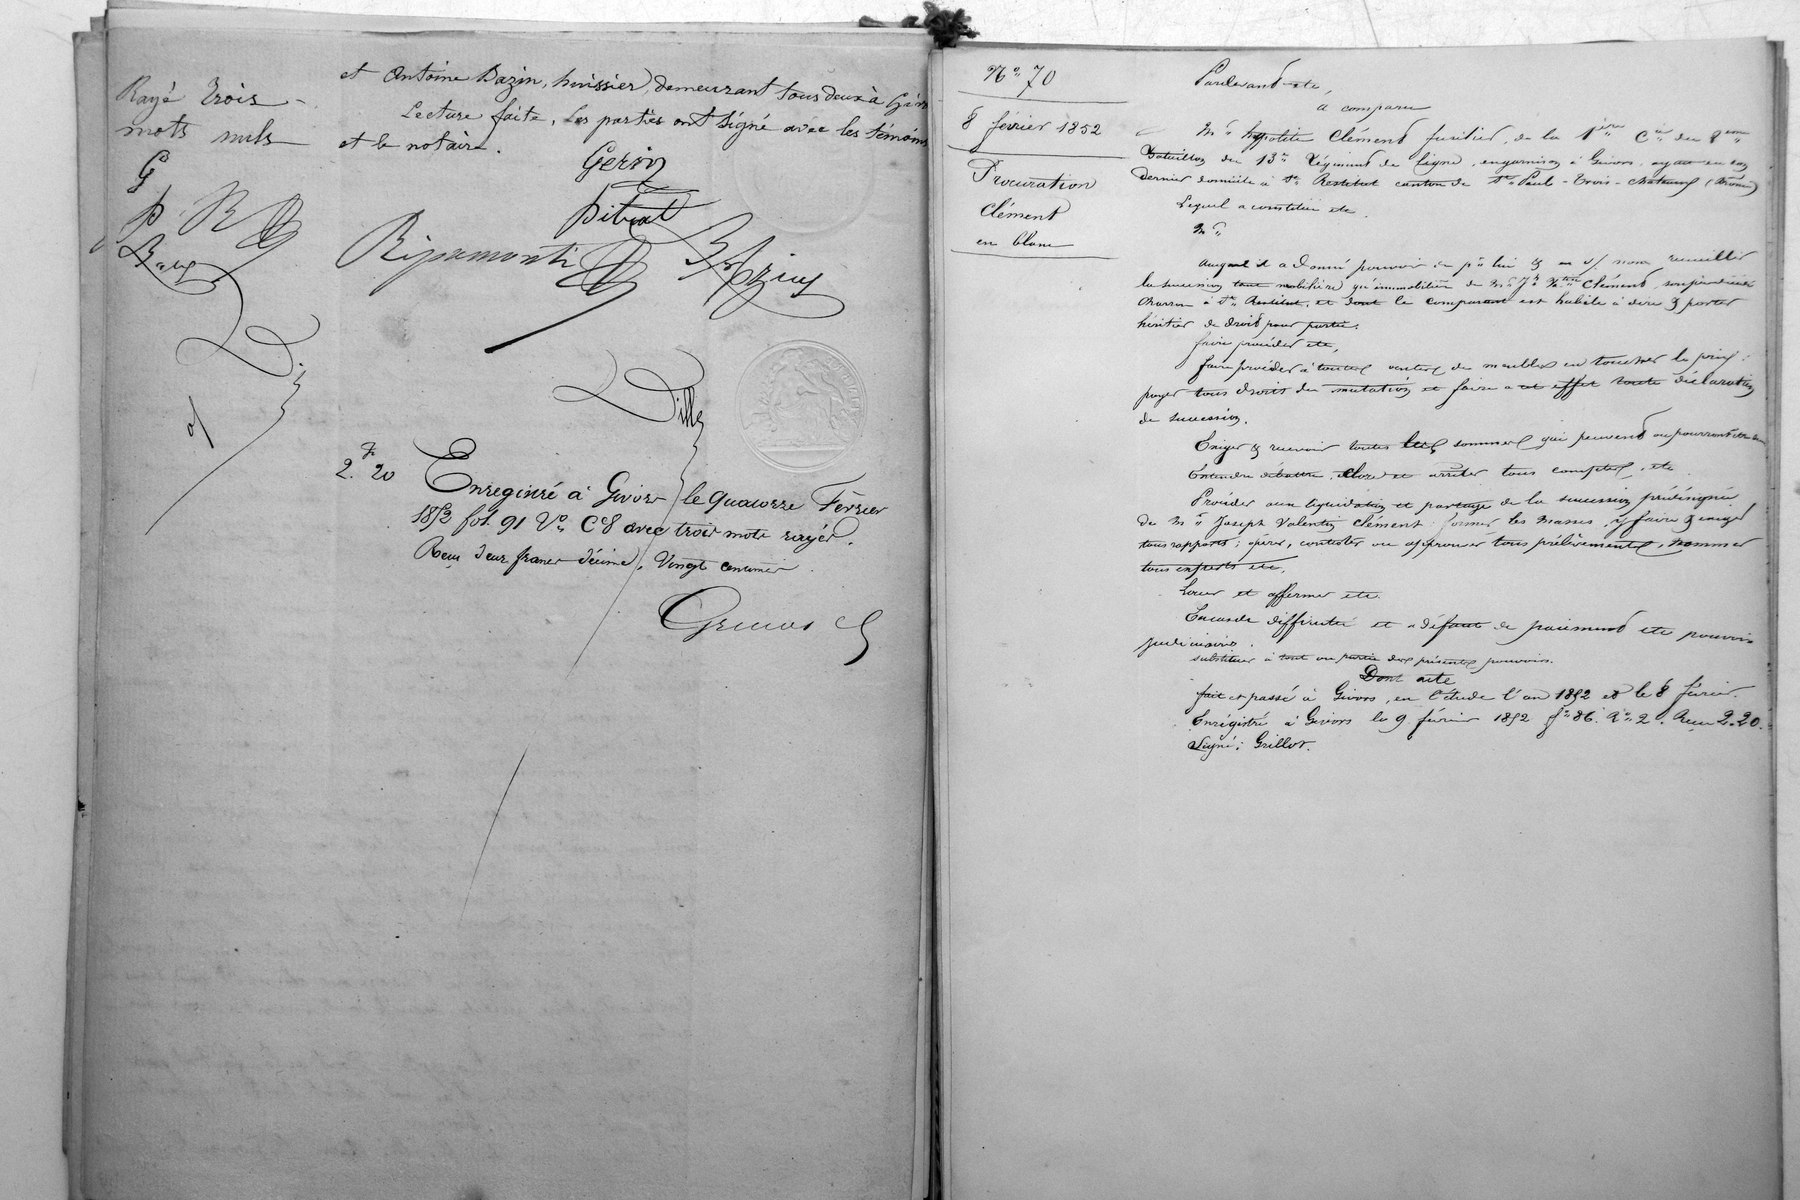 Rayé trois
mots nuls
G
P. R
et Antoine Bazin, huissier, demeurant tous deux à Givors
Lecture faite, les parties ont signé avec les témoins
et le notaire.
Geron
Pitrat
Ripamonti
Bazin
Dille
2.f 20
Enregistré à Givors le quatorze Février
1852 fol. 91 Vo. C8 avec trois mots rayés.
Reçu deux francs décime, Vingt centimes.
No. 70
8 février 1852
Procuration
Clément
en blanc
Pardevant etc,
a comparu
Mr. hypolite Clément fusilier, de la 1ère Cie. du 2eme
Bataillon du 13e. Régiment de Ligne, en garnison à Givors, ayant eu son
dernier domicile à St. Restitut canton de St. Paul-trois-chateaux (Drome)
Lequel a constitué etc.
Mr.
Auquel il a donné pouvoir de pr. lui & en s/ nom recueillir
la succession tant mobilière qu'immobilière de Mr. Jh. Vtin Clément, son père décédé
à St. Restitut, et dont le comparant est habile à dire & porter
héritier de droit pour partie.
faire procéder etc,
faire procéder à toutes ventes de meubles en toucher le prix;
payer tous droits de mutation et faire à cet effet toute déclaration
de succession.
Exiger & recevoir toutes les sommes qui peuvent ou pourront être dues
Entendre débattre, clore et arrêter tous comptes, etc.
Procéder aux liquidation et partage de la succession prédésignée
de Mr. Joseph Valentin Clément; former les masses, y faire & exiger
tous rapports; opérer, contester ou approuver tous prélèvements, nommer
tous experts etc.
Louer et affermer etc.
En cas de difficulté et à défaut de paiement etc pouvoirs
judiciaires.
substituer à tout ou partie des présents pouvoirs.
Dont acte
fait et passé à Givors, en l'étude l'an 1852 et le 8 février.
Enrégistré à Givors le 9 février 1852 fo. 86. Ro. 2. Reçu 2.20.
Signé: Grillot.